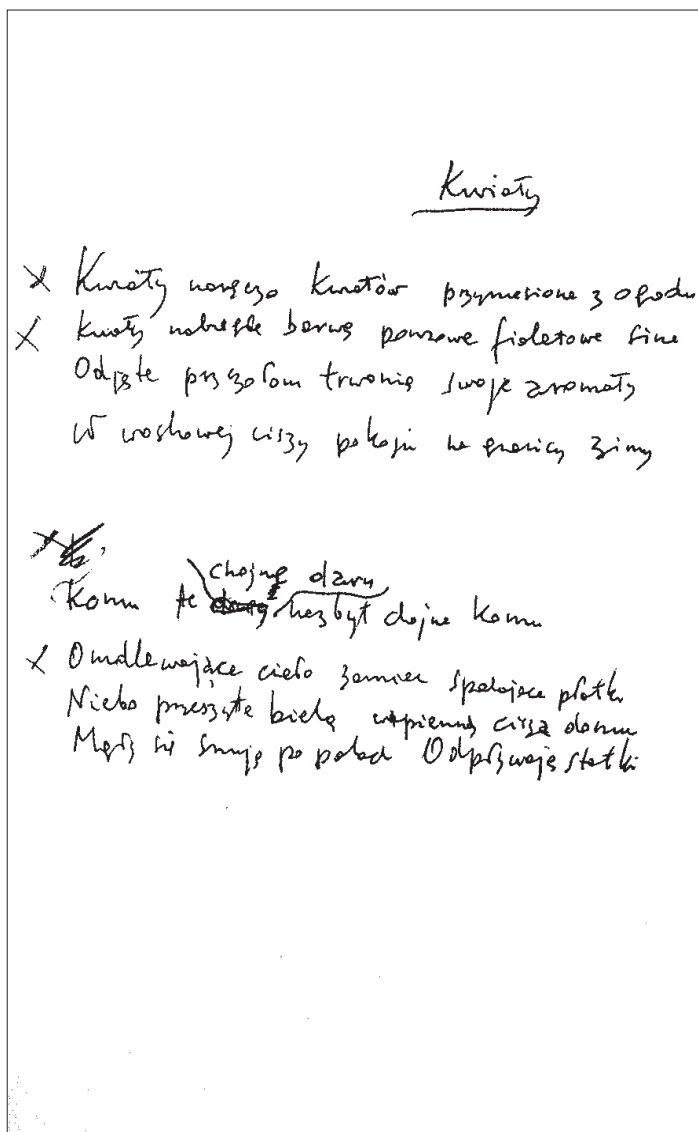 Kwiaty
x Kwiaty naręcza kwiatów przyniesione z ogrodu
x kwiaty nabrzękłe barwą ponsowe fioletowe sine
Odjęte pszczołom trwonią swoje aromaty
W woskowej ciszy pokoju na granicy zimy
x
chojne daru
Komu te nazbyt dojne komu
x Omdlewające ciało zamieć spadające płatki
Niebo przeszyte bielą cisza domu
Mgły się snują po polach Odpływają statki